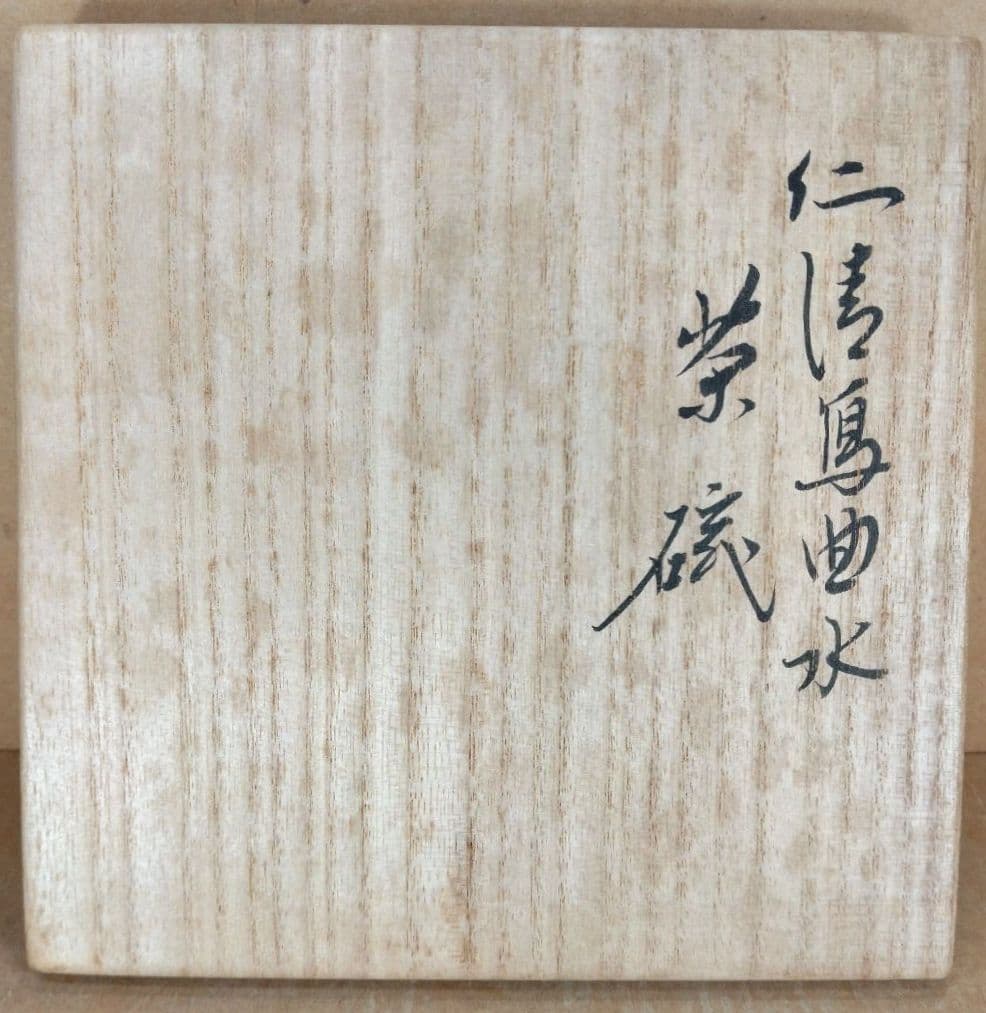 仁清寫曲水
茶碗